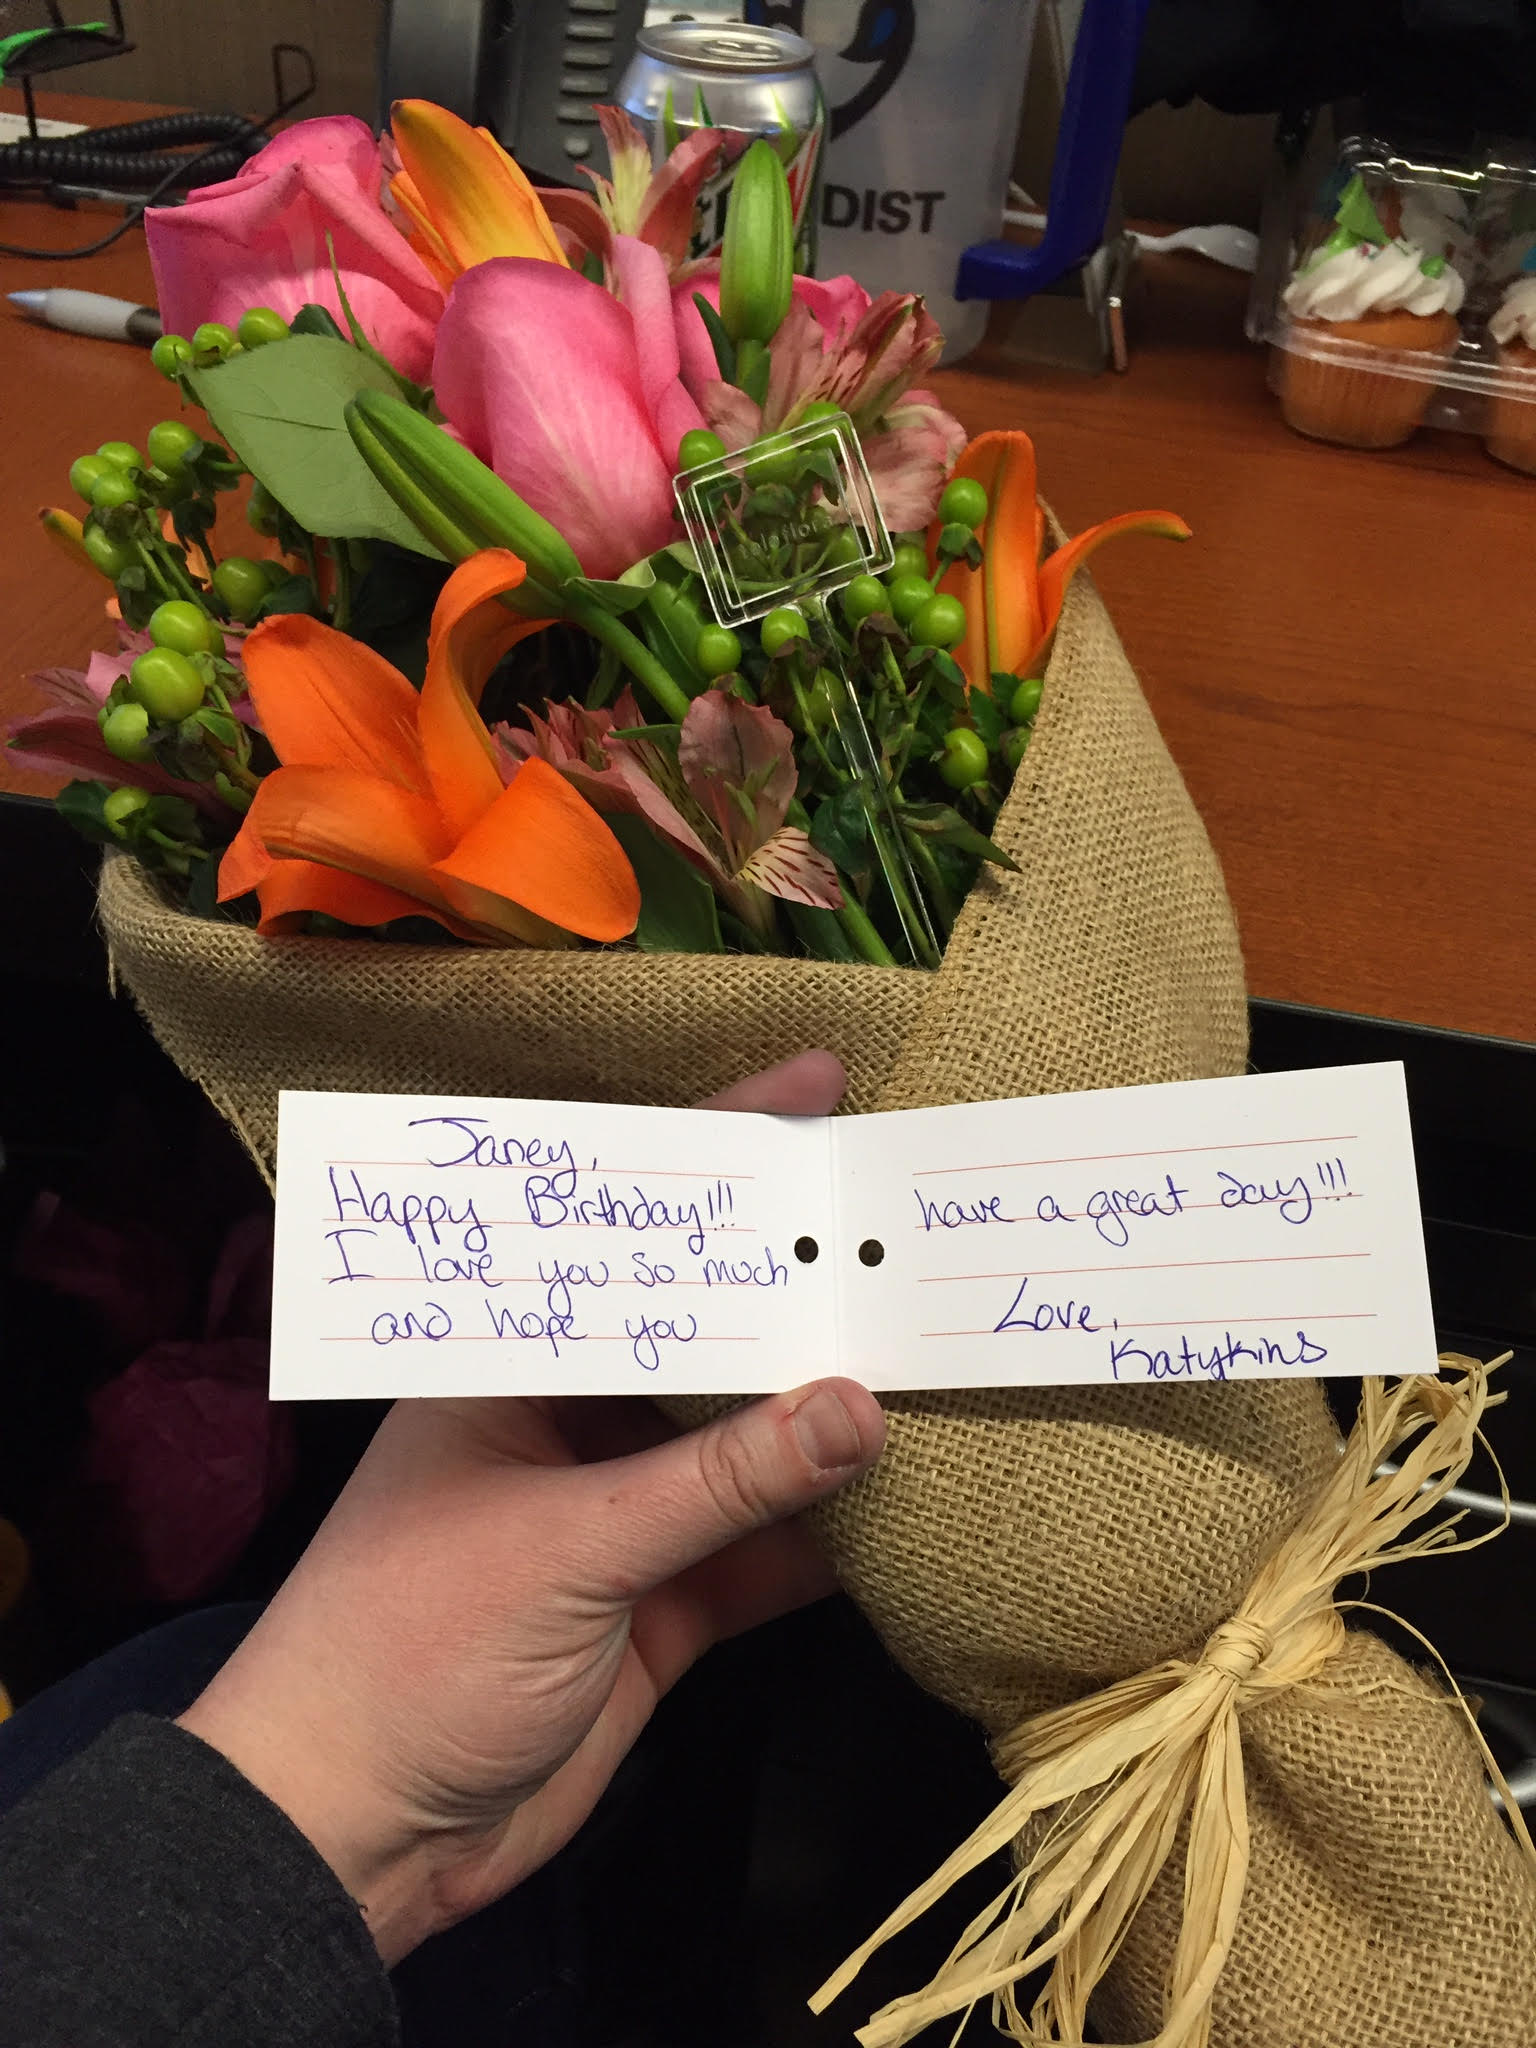 DIST
teleflora
Janey,
Happy Birthday!!!
I love you so much
and hope you
have a great day!!!
Love,
Katykins